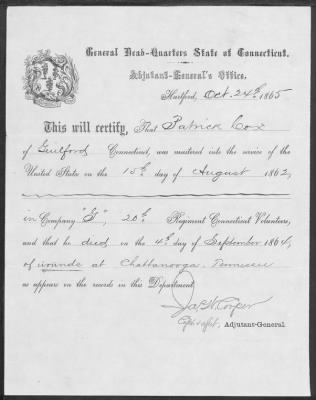 General Head-Quarters State of Connecticut.
Adjutant-General's Office.
Hartford, Oct. 24th, 1865
This will certify, That Patrick Cox
of Guilford Connecticut, was mustered into the service of the
United States on the 15th day of August 1862,
in Company "G", 20th Regiment Connecticut Volunteers,
and that he died on the 4th day of September 1864,
of wounds at Chattanooga, Tennessee
as appears on the records in this Department.
Adjutant-General.